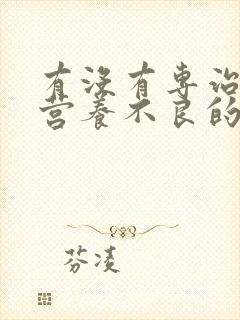 有没有专治
营养不良的
芬凌